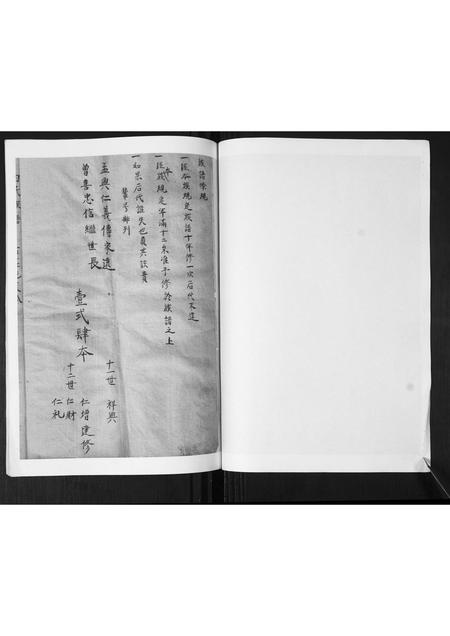 族譜條規
一經各族規定族譜十年修一次后代不違
一經本族規定年滿十二米准予修於族譜之上
一如果后代誰失也負其談責
輩号排列
孟興仁義傳家遠
曾喜忠信繼世長
壹弍肆本
十一世 祥興
十二世 仁增建修
仁財
仁礼